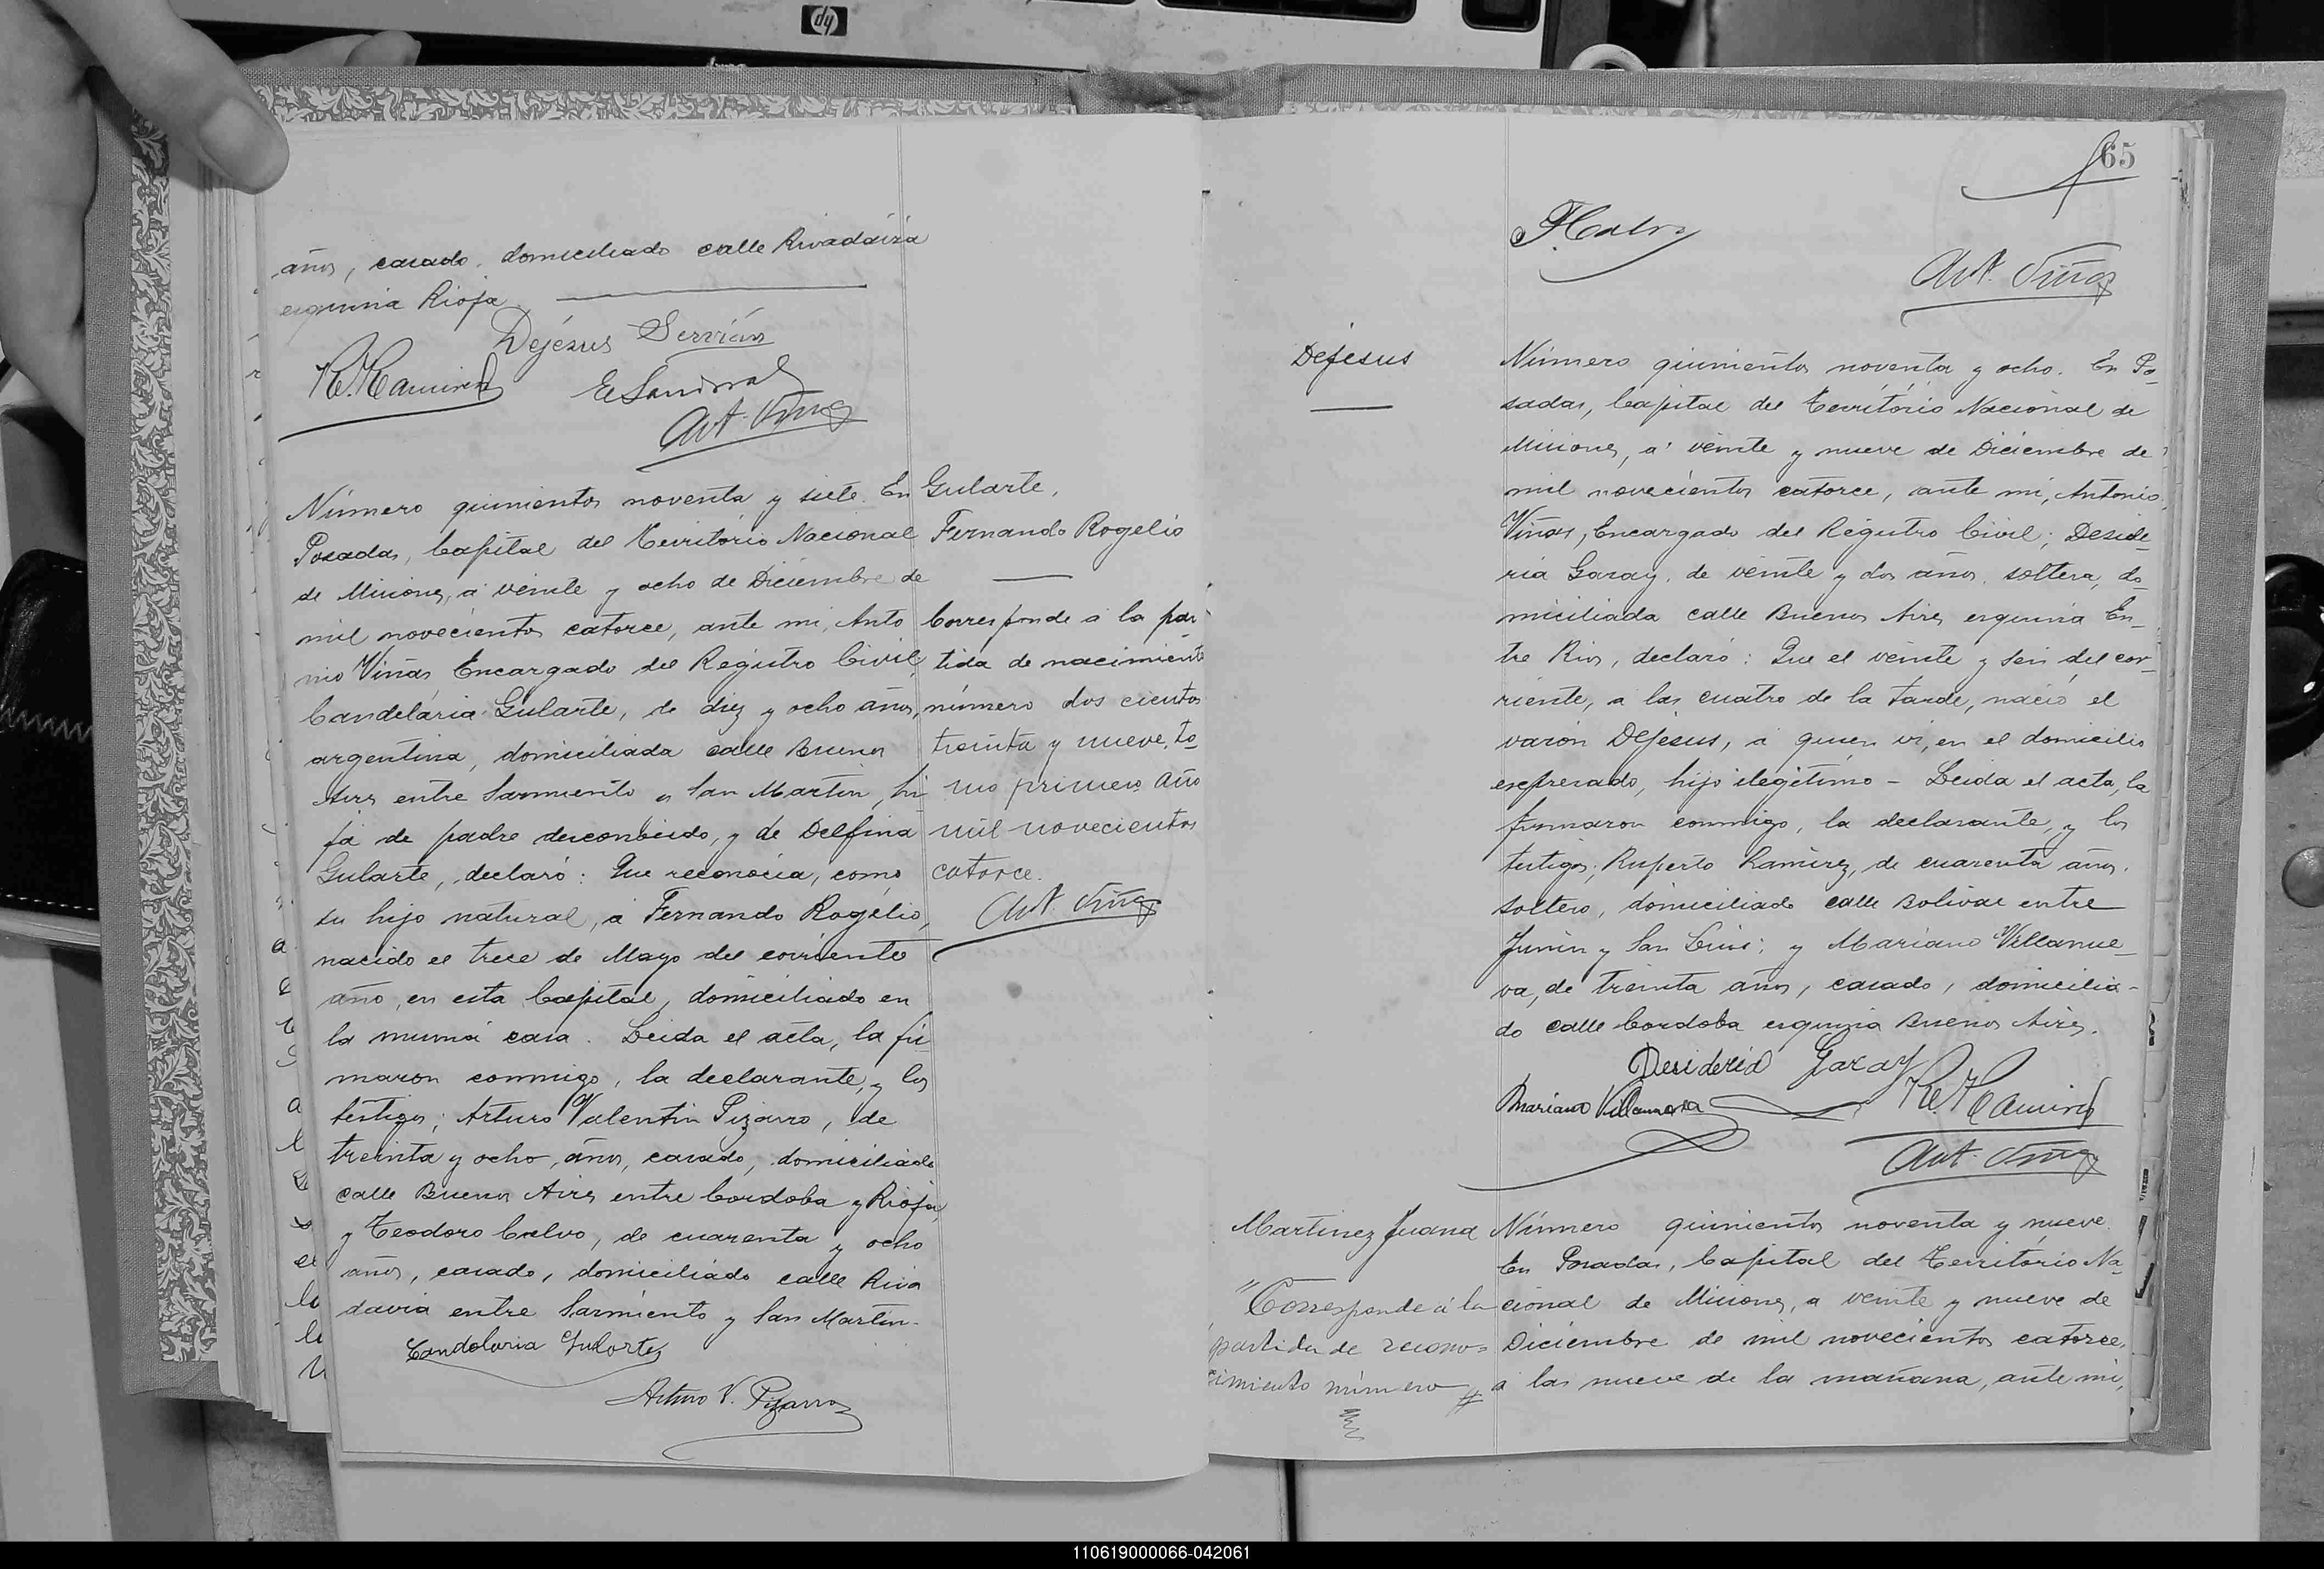 hp
años, casado, domiciliado calle Rivadavia
esquina Rioja
Dejésus Servián
R. Ramirez
E Sandoval
Ant. Viñas
Número quinientos noventa y siete. En
Posadas, Capital del Territorio Nacional
de Misiones, á veinte y ocho de Diciembre de
mil novecientos catorce, ante mi, Anto
nio Viñas Encargado del Registro Civil,
Candelaria Gularte, de diez y ocho años,
argentina, domiciliada calle Buenos
Aires entre Sarmiento y San Martin, hi
ja de padre desconocido, y de Delfina
Gularte, declaró: Que reconocía, como
su hijo natural, á Fernando Rogelio,
nacido el trece de Mayo del corriente
año, en esta Capital, domiciliado en
la misma casa. Leida el acta, la fir
maron conmigo, la declarante, y los
testigos; Arturo Valentin Pizarro, de
treinta y ocho, años, casado, domiciliado
calle Buenos Aires entre Cordoba y Rioja,
y Teodoro Calvo, de cuarenta y ocho
años, casado, domiciliado calle Riva
davia entre Sarmiento y San Martin.
Candelaria Gularte
Arturo V. Pizarro
Gularte,
Fernando Rogelio
Corresponde á la par
tida de nacimiento
número dos cientos
treinta y nueve, to
mo primero año
mil novecientos
catorce.
Ant. Viñas
65
Ant. Viñas
Dejesus
Número quinientos noventa y ocho. En Po
sadas, Capital del Territorio Nacional de
Misiones, á veinte y nueve de Diciembre de
mil novecientos catorce, ante mi, Antonio
Viñas, Encargado del Registro Civil; Deside
ria Garay, de veinte y dos años, soltera, do
miciliada calle Buenos Aires esquina En
tre Rios, declaró: Que el veinte y seis del cor
riente, a las cuatro de la tarde, nació el
varon Dejesus, á quien vi, en el domicilio
expresado, hijo ilegítimo – Leida el acta, la
firmaron conmigo, la declarante, y los
testigos; Ruperto Ramirez, de cuarenta años,
soltero, domiciliado calle Bolivar entre
Junin y San Luis; y Mariano Villanue
va, de treinta años, casado, domicilia-
do calle Cordoba esquina Buenos Aires.
Desideria Garay
Mariano Villanueva
R. Ramirez
Ant. Viñas
Martinez Juana
"Corresponde á la
partida de recono=
cimiento número #
Número quinientos noventa y nueve.
En Posadas, Capital del Territorio Na
cional de Misiones, a veinte y nueve de
Diciembre de mil novecientos catorce,
á las nueve de la mañana, ante mi,
110619000066-042061